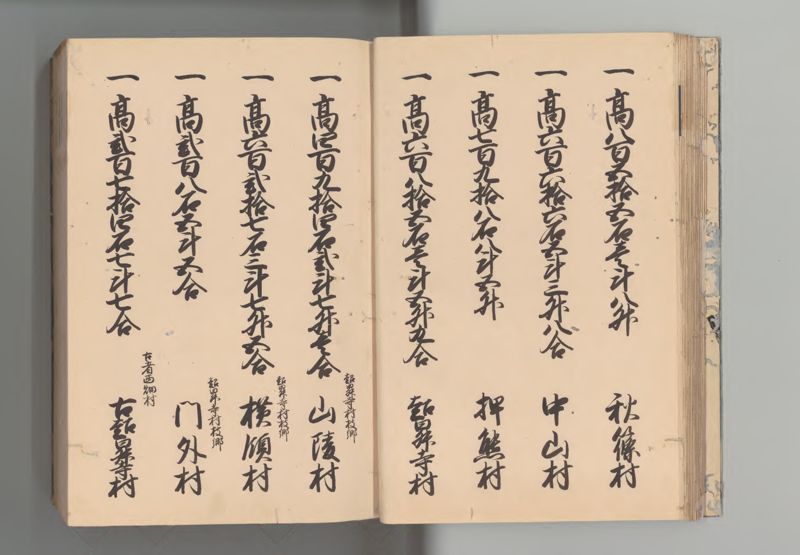 一 高八百五拾五石壱斗八升 秋篠村
一 高六百六拾六石五斗三升八合 中山村
一 高七百九拾八石八斗五升 押熊村
一 高六百八拾五石壱斗五升九合 超昇寺村
超昇寺村枝郷
一 高四百九拾四石弐斗七升壱合 山陵村
超昇寺村枝郷
一 高六百弐拾七石三斗七升五合 横領村
超昇寺村枝郷
一 高弐百八石五斗五合 門外村
古者西畑村
一 高弐百七拾四石七斗七合 古超昇寺村